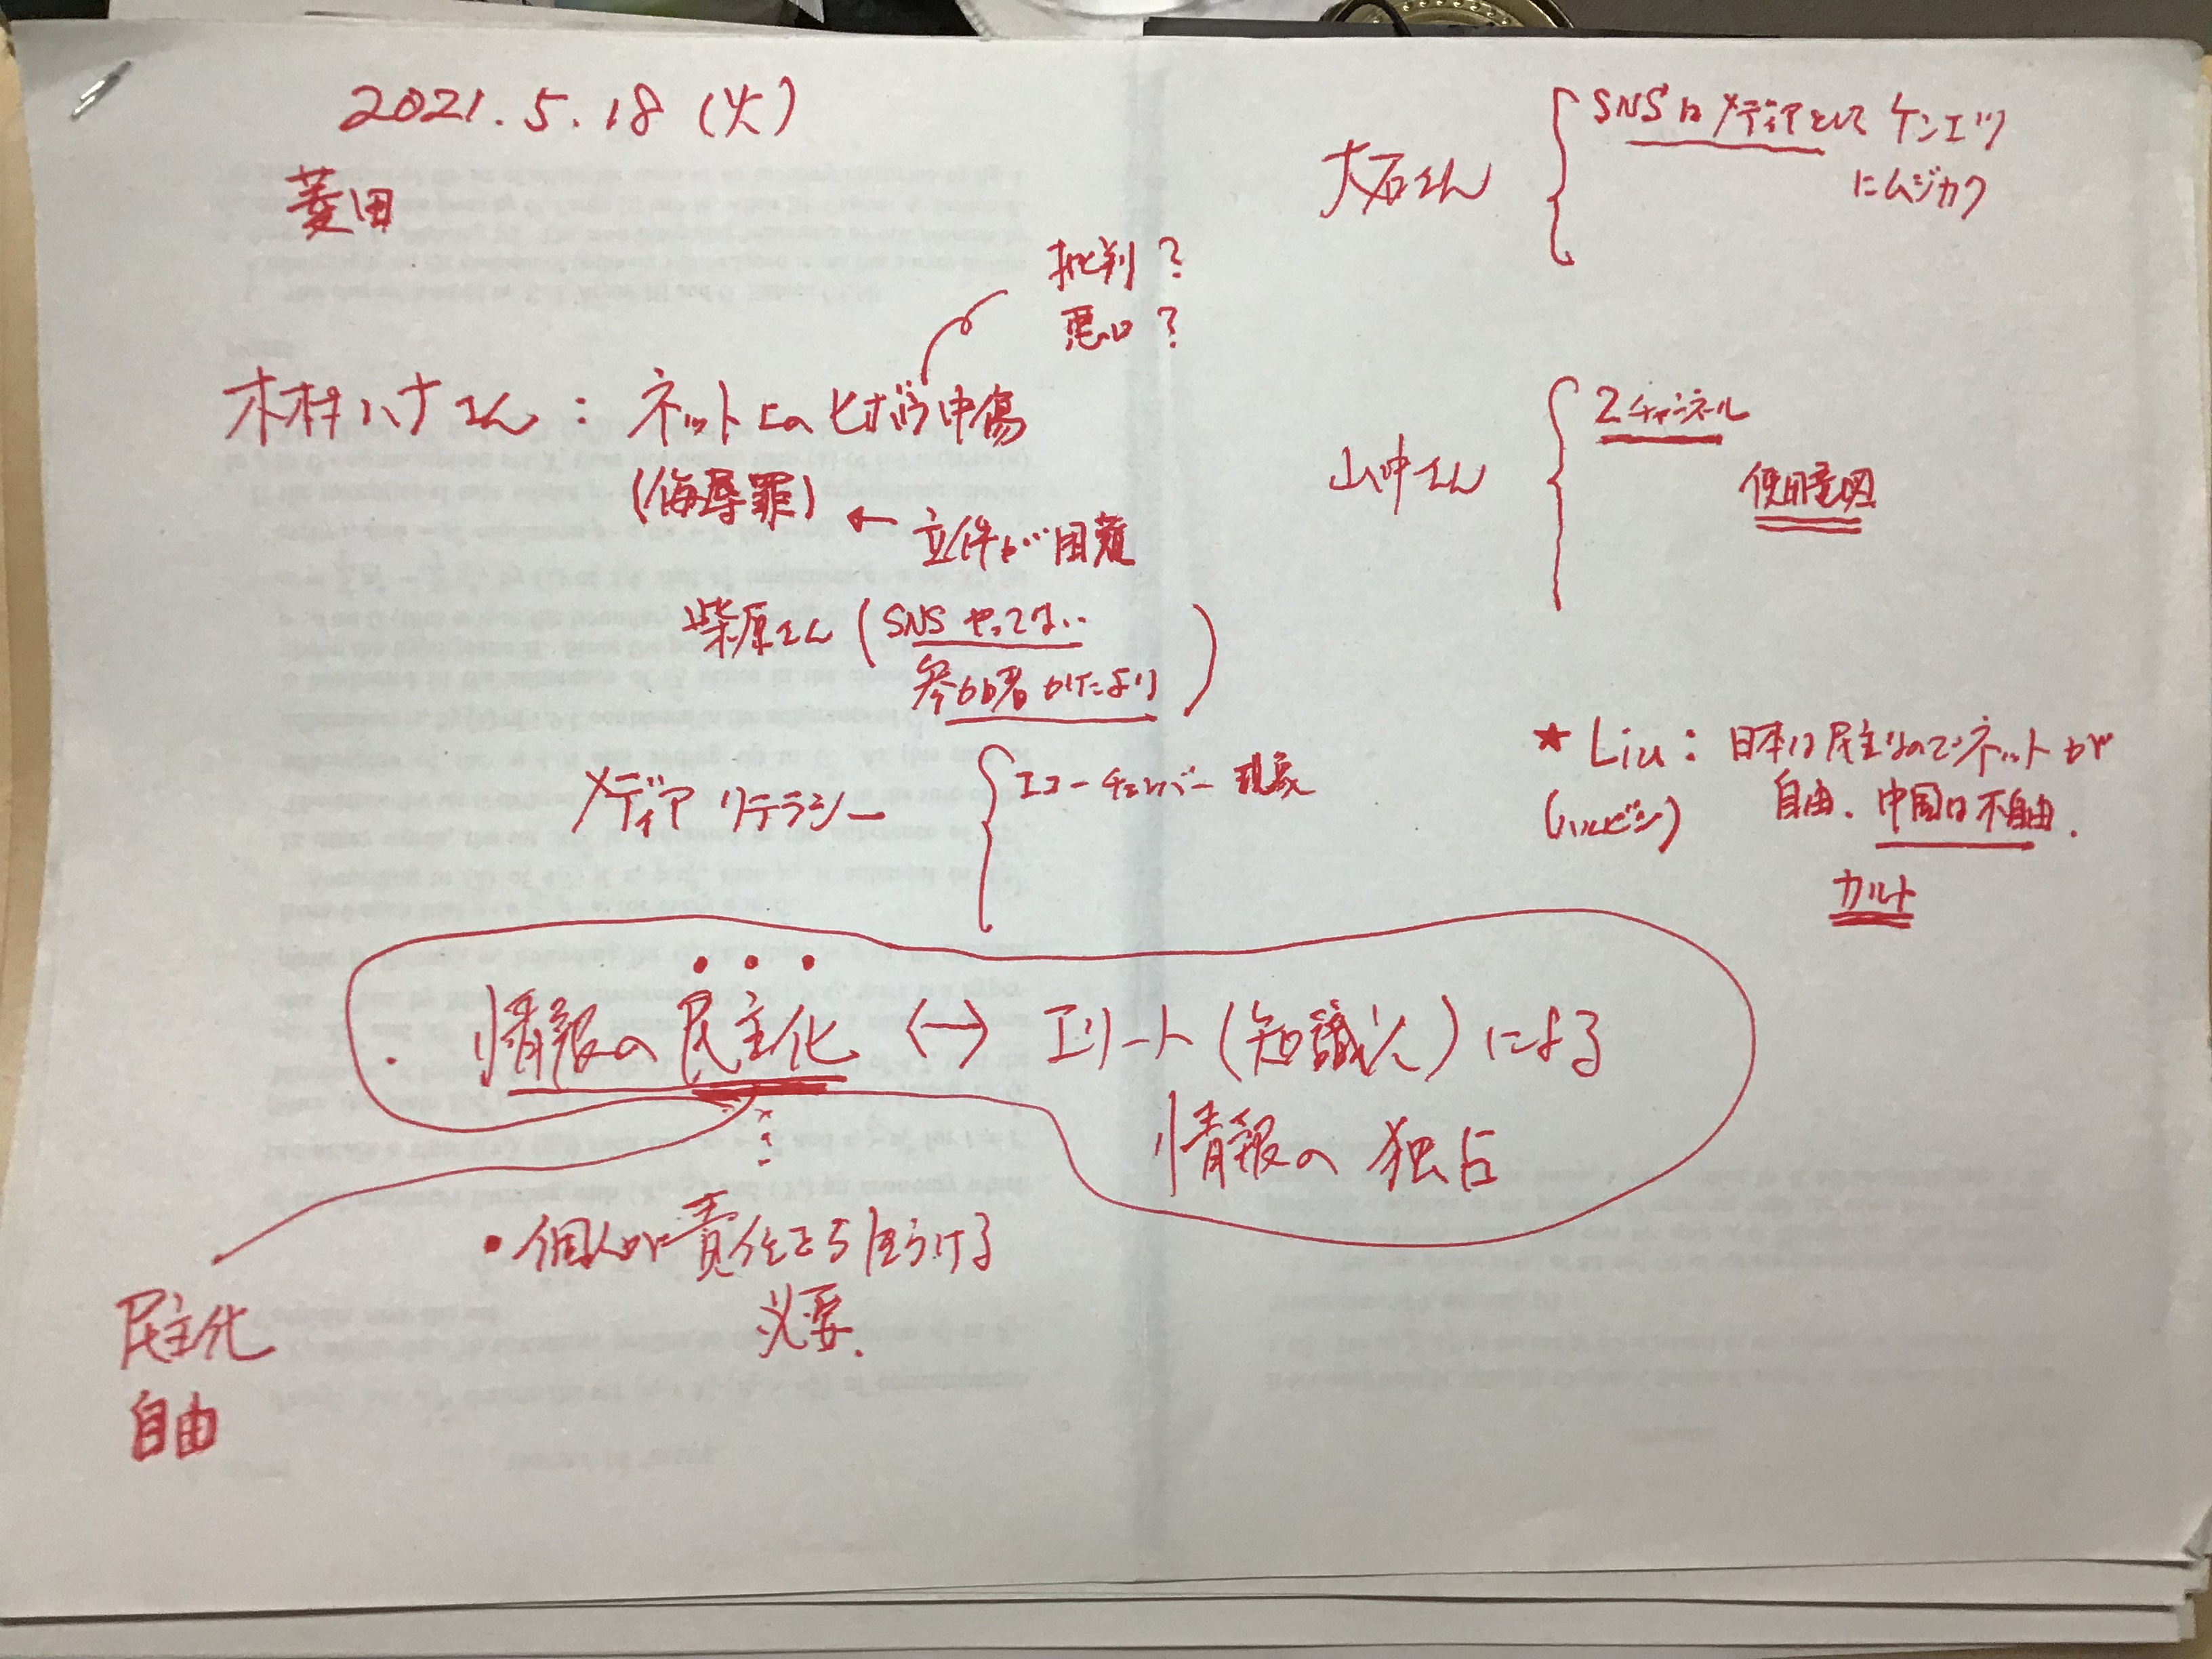 2021.5.18(火)
菱田
批判?
悪口?
木村ハナさん:ネット上のヒボウ中傷
(侮辱罪)
← 立件が困難
柴原さん(SNSやってない
参加者がけたより)
メディアリテラシー { エコーチェンバー現象
・情報の民主化 ↔ エリート(知識人)による
情報の独占
・個人が責任をうけ
必要.
民主化
自由
大石さん { SNSはメディアとしてケンエツ
にムジカク
山中さん { 2チャンネル
使用意図
★ Liu:日本は民主なのでネットが
(ハルビン) 自由.中国は不自由.
カルト